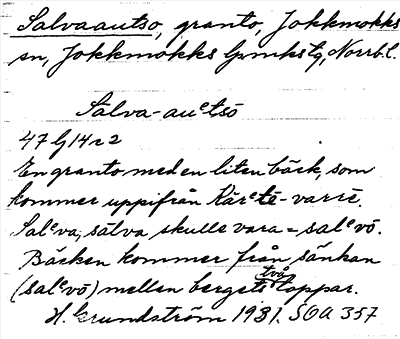 Salvaautso, granto, Jokkmokks
sn, Jokkmokks lpmkstg, Norrb.l.
Sälva-auᵉtsō
47 G 14 c 2
En granto med en liten bäck, som
kommer uppifrån Kärᵉtē-varrē.
Salᵉva, sälva skulle vara = salᵉvō.
Bäcken kommer från sänkan
(salᵉvō) mellan bergets två toppar.
H. Grundström 1931. SOA 357